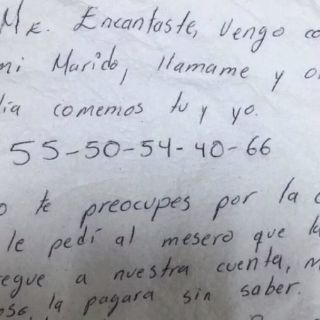 Me. Encantaste, Vengo co
mi Marido, llamame y o
día comemos tu y yo.
55-50-54-40-66
o te preocupes por la c
le pedí al mesero que la
egue a nuestra cuenta, m
oso la pagara sin saber.